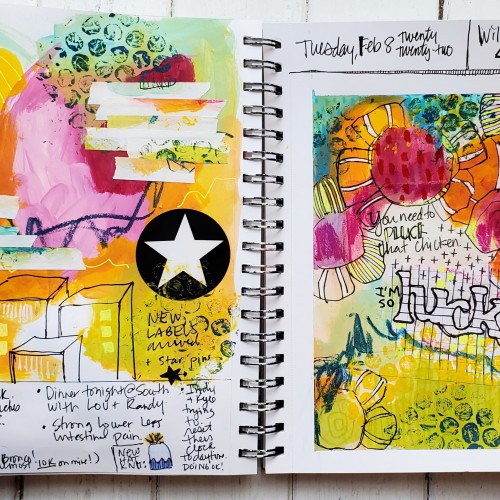 NEW
LABELS
arrived
+ star pin
• Dinner tonight @ South
with Lou + Randy.
• strong lower leg
intestinal pain
NEW
HAT
• Indy
+ Kyle
trying
to
reset
their
clock
to daytime.
DOING OK!
10K on mix!)
Tuesday, Feb 8 twenty
twenty-two
Wil
You need to
PLUCK
that chicken.
I'M
SO